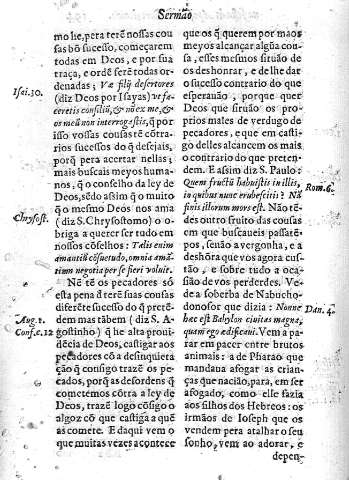 Sermão
mo he, pera terẽ nossas cou
sas bõ sucesso, começarem
todas em Deos, e por sua
traça, e ordẽ serẽ todas or-
denadas; Væ filij desertores
Isei.30.
(diz Deos por Isayas) ut fa-
ceretis consiliũ, & nõ ex me, &
os meũ non interrogastis, q̃ por
isso vossas cousas tẽ cõtra-
rios sucessos do q̃ desejais,
porq̃ pera acertar nellas;
mais buscais meyos huma-
nos, q̃ o conselho da ley de
Deos, sẽdo assim q̃ o muito
q̃ o mesmo Deos nos ama
Chrysost.
(diz S. Chrysostomo) o o-
briga a querer ser tudo em
nossos cõselhos: Talis enim
amantiũ cõsuetudo, omnia amã-
tium negotia per se fieri voluit.
Nẽ tẽ os pecadores só
esta pena ã terẽ suas cousas
diferẽte sucesso do q̃ pretẽ-
Aug.1.
dem mas tãbem (diz S. A-
Conf.c.12
gostinho) q̃ he alta provi-
dẽcia de Deos, castigar aos
pecadores cõ a desinquieta
ção q̃ consigo trazẽ os pe-
cados, porq̃ as desordens q̃
cometemos cõtra a ley de
Deos, trazẽ logo cõsigo o
algoz cõ que castiga a quẽ
as comete. E daqui vem o
que muitas vezes acontece
que os q̃ querem por maos
meyos alcançar algũa cou-
sa, esses mesmos sirvão de
os deshonrar, e de lhe dar
o sucesso contrario do que
esperavão, porque quer
Deos que sirvão os pro-
prios males de verdugo de
pecadores, e que em casti-
go delles alcancem os mais
o contrario do que preten-
dem. E assim diz S. Paulo:
Quem fructũ habuistis in illis,
Rom.6.
in quibus nunc erubescitis? Nã
finis illorum mors est. Não tẽ-
des outro fruito das cousas
em que buscaveis passatẽ-
pos, senão a vergonha, e a
deshõra que vos agora cus-
tão, e sobre tudo a oca-
sião de vos perderdes. Ve-
de a soberba de Nabucho-
donosor que dizia: Nonne
Dan.4.
hæc est Babylon civitas magna,
quam ego ædificavi. Vem a pa-
rar em pacer entre brutos
animais: a de Pharao que
mandava afogar as crian-
ças que nacião, para, em ser
afogado, como elle fazia
aos filhos dos Hebreos: os
irmãos de Ioseph que os
vendem pera atalhar o seu
sonho, vem ao adorar, e
depen-